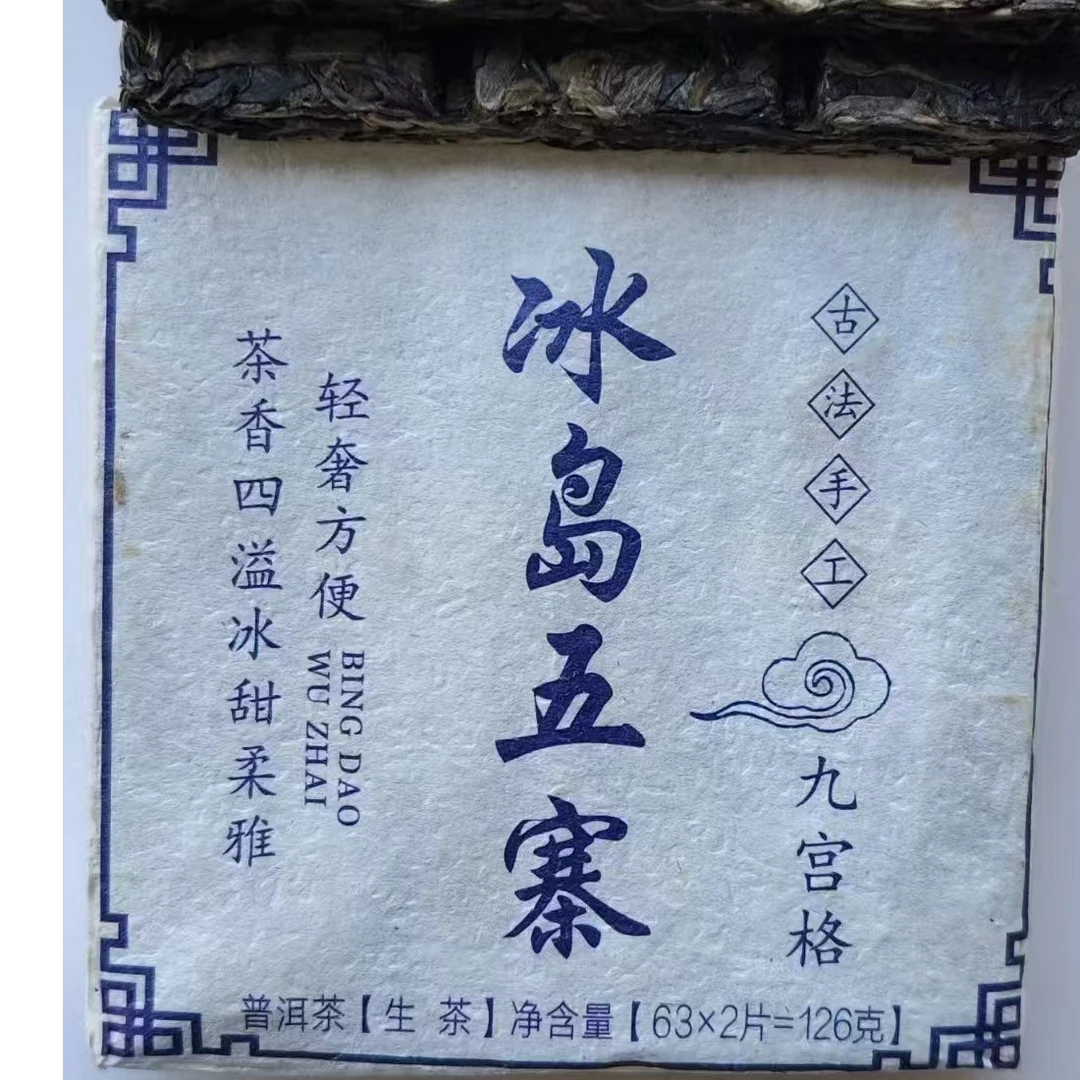 古法手工
九宫格
冰岛五寨
轻奢方便
BING DAO
WU ZHAI
茶香四溢冰甜柔雅
普洱茶【生 茶】净含量【63×2片=126克】